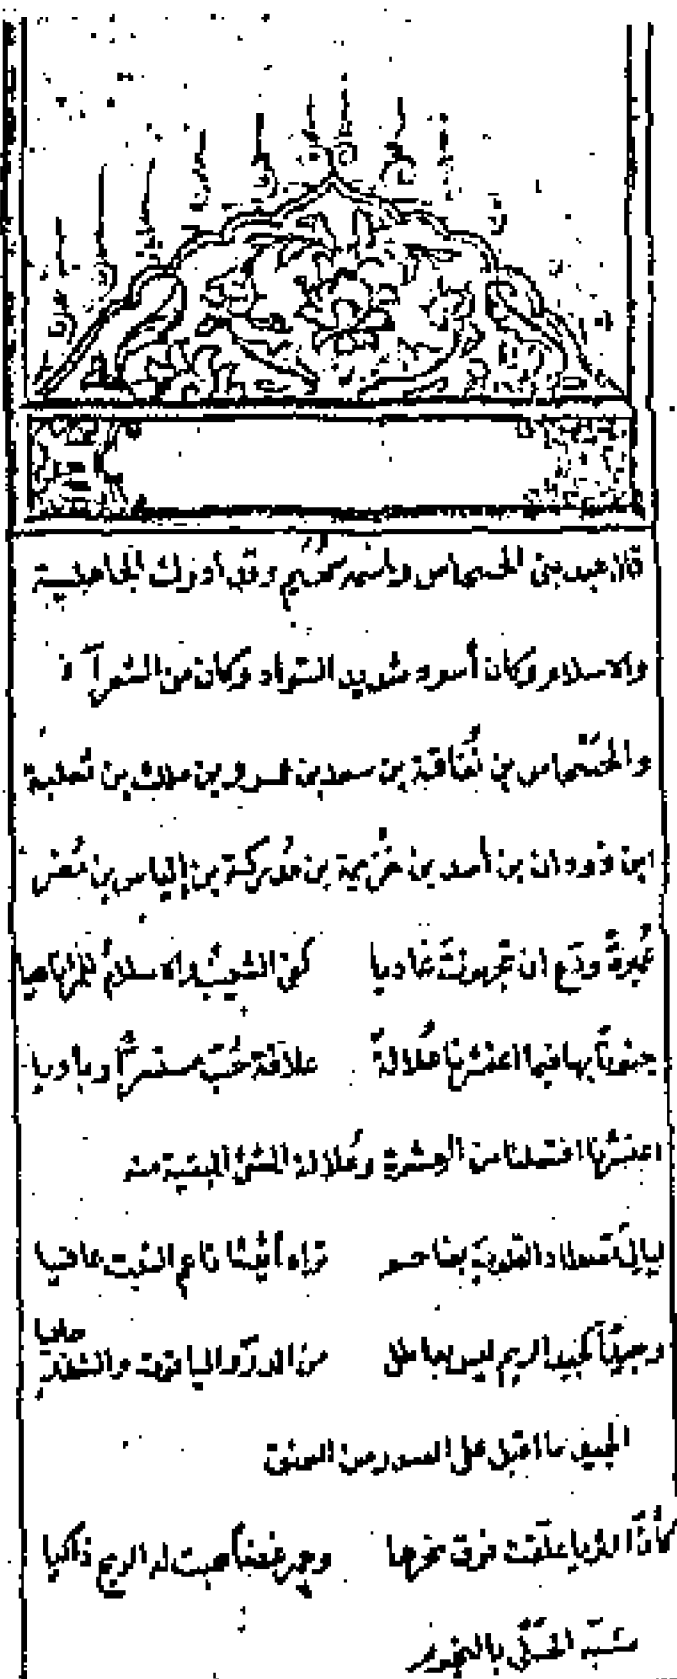 قال عبد بنى الحسحاس واسمه سُحَيم وقد أدرك الجاهلية
والاسلام وكان أسود شديد السَّواد وكان من الشعرآ
والحَسْحاس بن نُفَاثة بن سعد بن عمرو بن ملك بن ثعلبة
ابن دودان بن أسد بن خُزَيمة بن مُدركة بن إلياس بن مُضر
عُمَيرةَ ودّع ان تجهزتَ غاديا كفى الشيبُ والاسلامُ للمرْ ناهيا
جنونًا بها فيما اعتشرنا عُلالةً علاقةَ حُبٍّ مستسرًّا وباديا
اعتشرنا افتعلنا من العِشرة وعُلالة الشئ البقية منه
لياليَ تصطاد القلوبَ بفاحمٍ تراه أثيثًا ناعم النبت عافيا
وجيدٍ كجيد الريم ليس بعاطل من الدرّ والياقوت والشذر حاليا
الجيد ما اقبل على الصدر من العنق
كأنّ الثريا علقت فوق نحرها وجمر غضًا هبت له الريح ذاكيا
شبّه الحَلْى بالنجوم